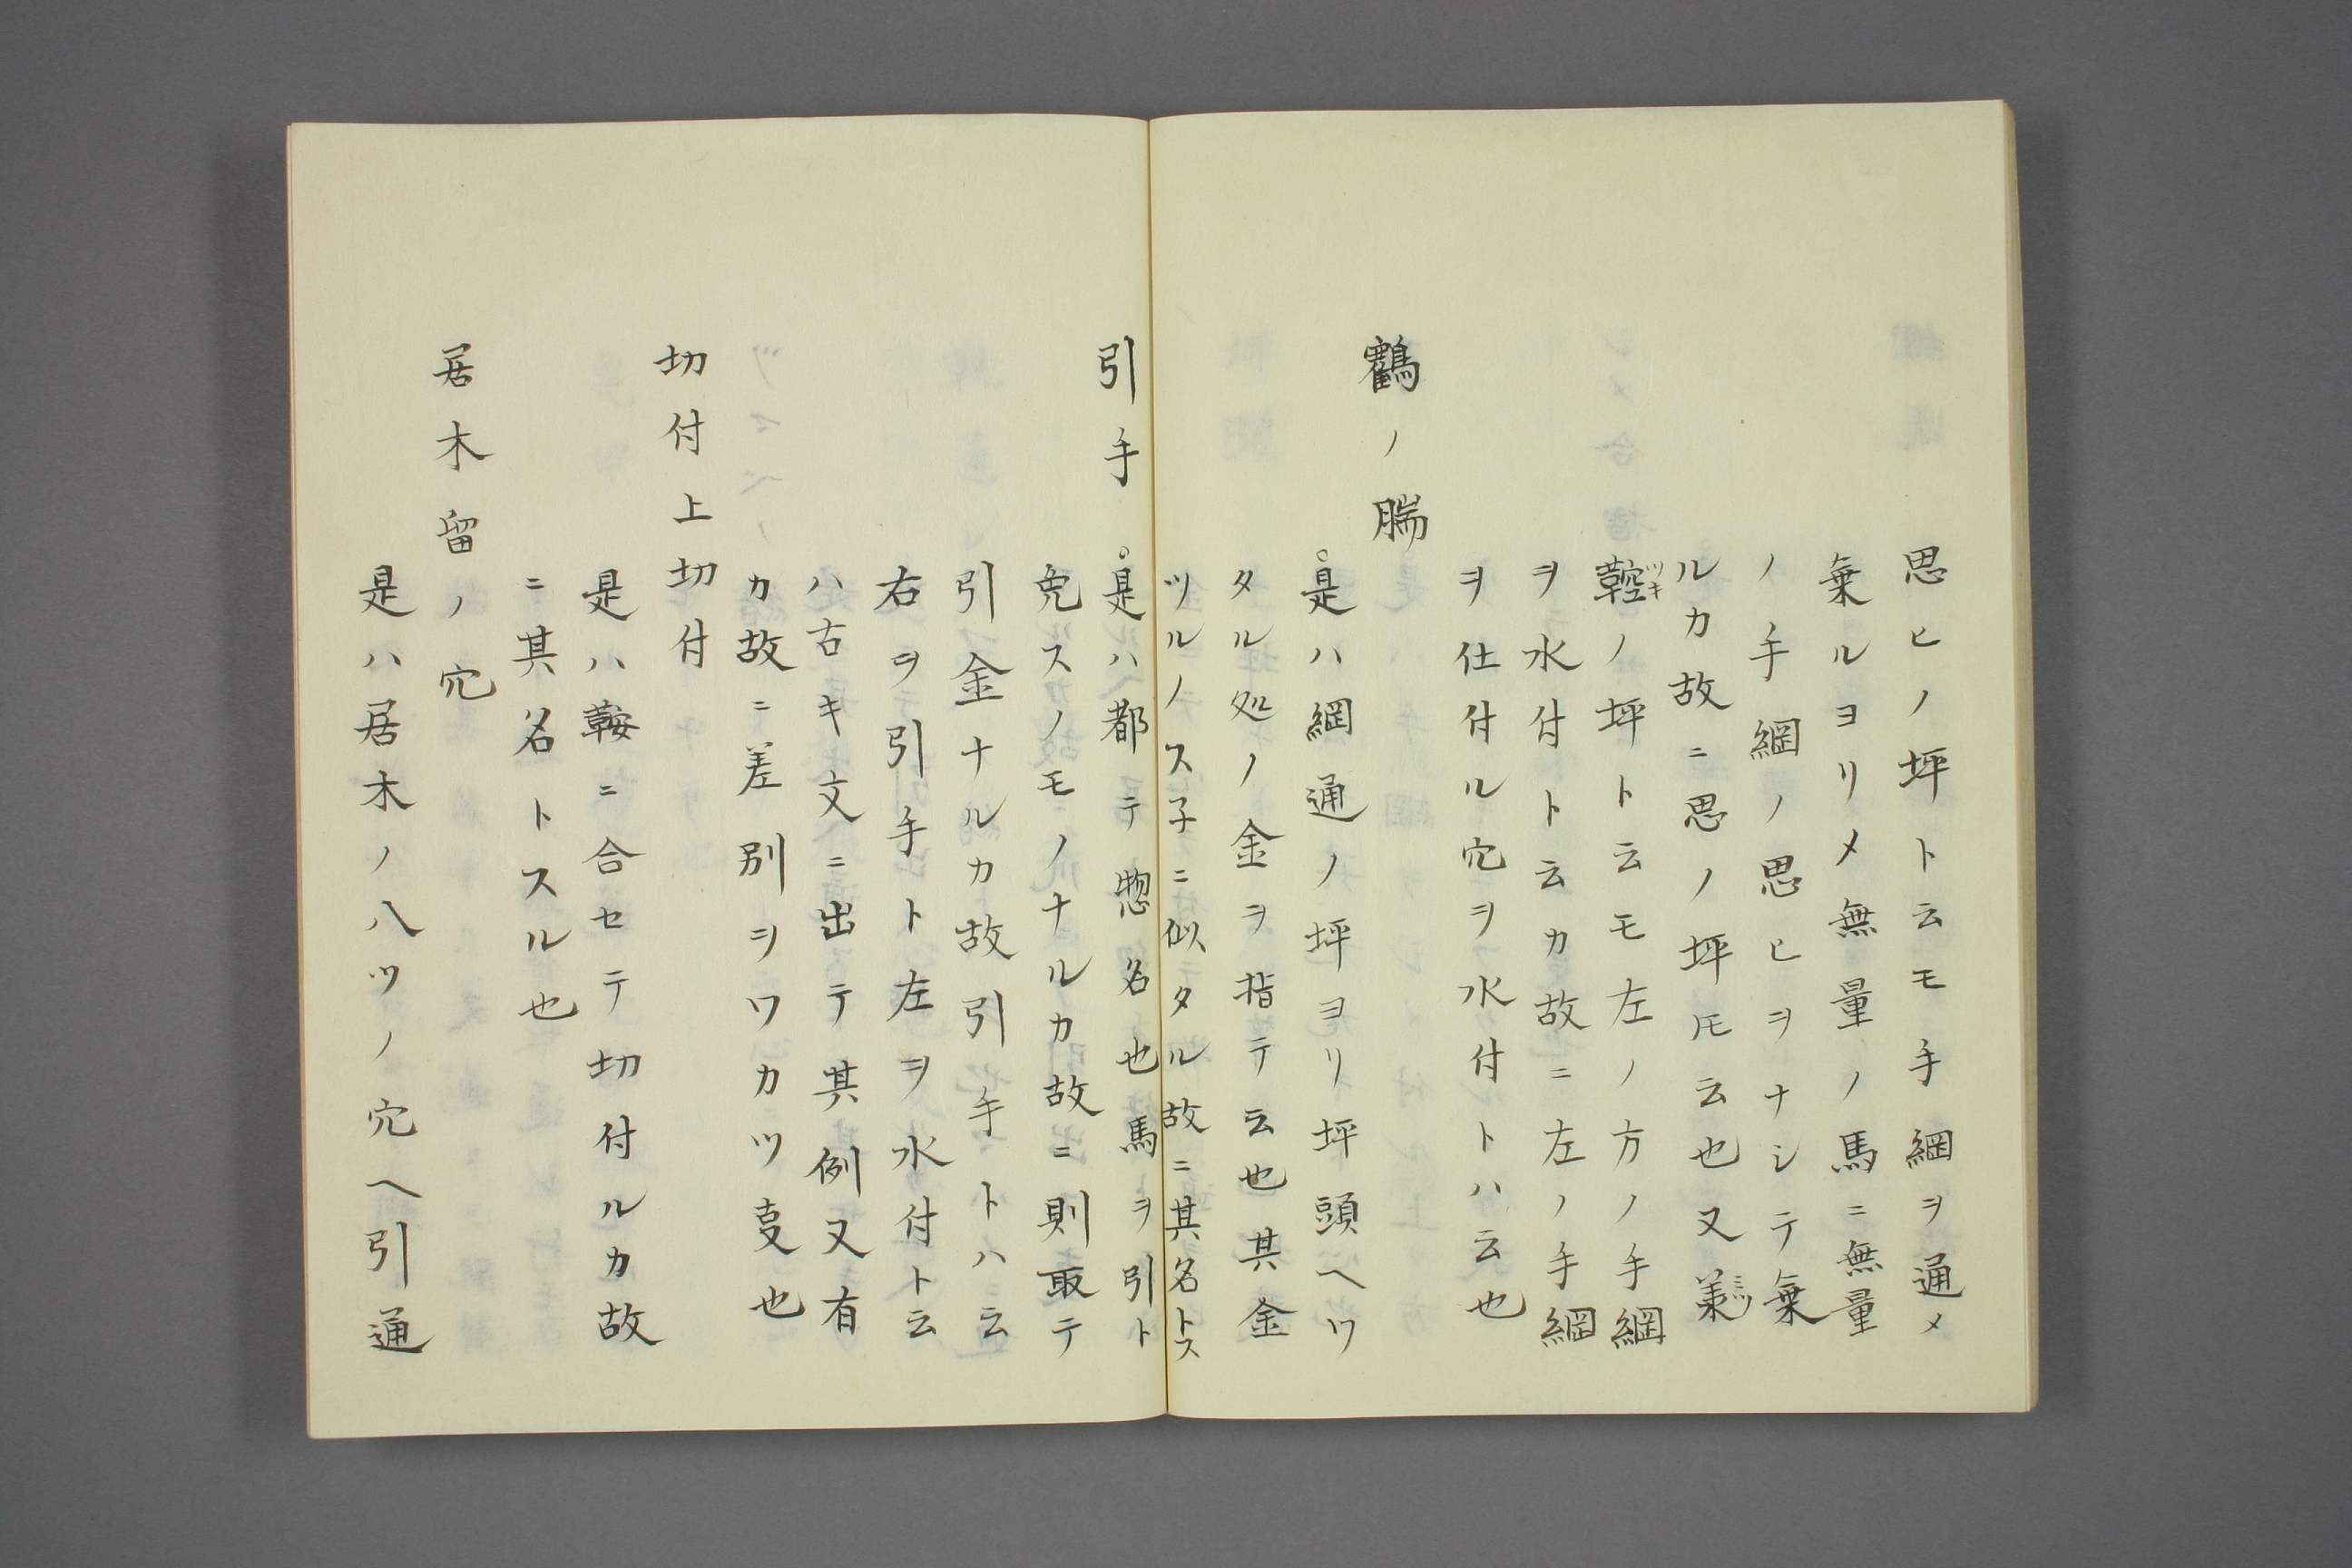 思ヒノ坪ト云モ手綱ヲ通メ
乗ルヨリメ無量ノ馬ニ無量
ノ手綱ノ思ヒヲナシテ乗
ルカ故ニ思ノ坪ㇳモ云也又
鞚ツキノ坪ト云モ左ノ方ノ手綱
ヲ水付ト云カ故ニ左ノ手綱
ヲ仕付ル穴ヲ水付トハ云也
鶴ノ腨
。是ハ綱通ノ坪ヨリ坪頭ヘワ
タル処ノ金ヲ指テ云也其金
ツルノス子ニ似タル故ニ其名トス
引手
。是ハ都テ惣名也馬ヲ引ト
免スノモノナルカ故ニ則取テ
引金ナルカ故引手トハ云
右ヲ引手ト左ヲ水付ト云
ハ古キ文ニ出テ其例又有
カ故ニ差別ヲワカツ㕝也
切付上切付
是ハ鞍ニ合セテ切付ルカ故
ニ其名トスル也
居木留ノ穴
是ハ居木ノ八ツノ穴ヘ引通